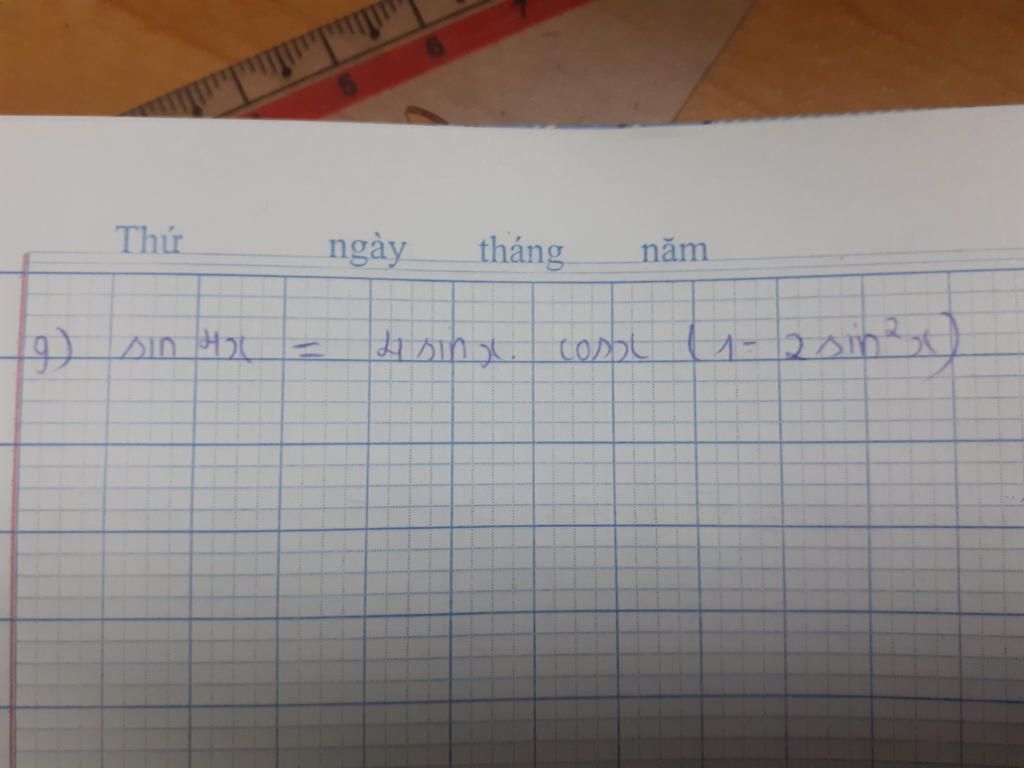 5 6 7
Thứ ngày tháng năm
g) sin 4x = 4 sin x. cosx (1 - 2 sin²x)